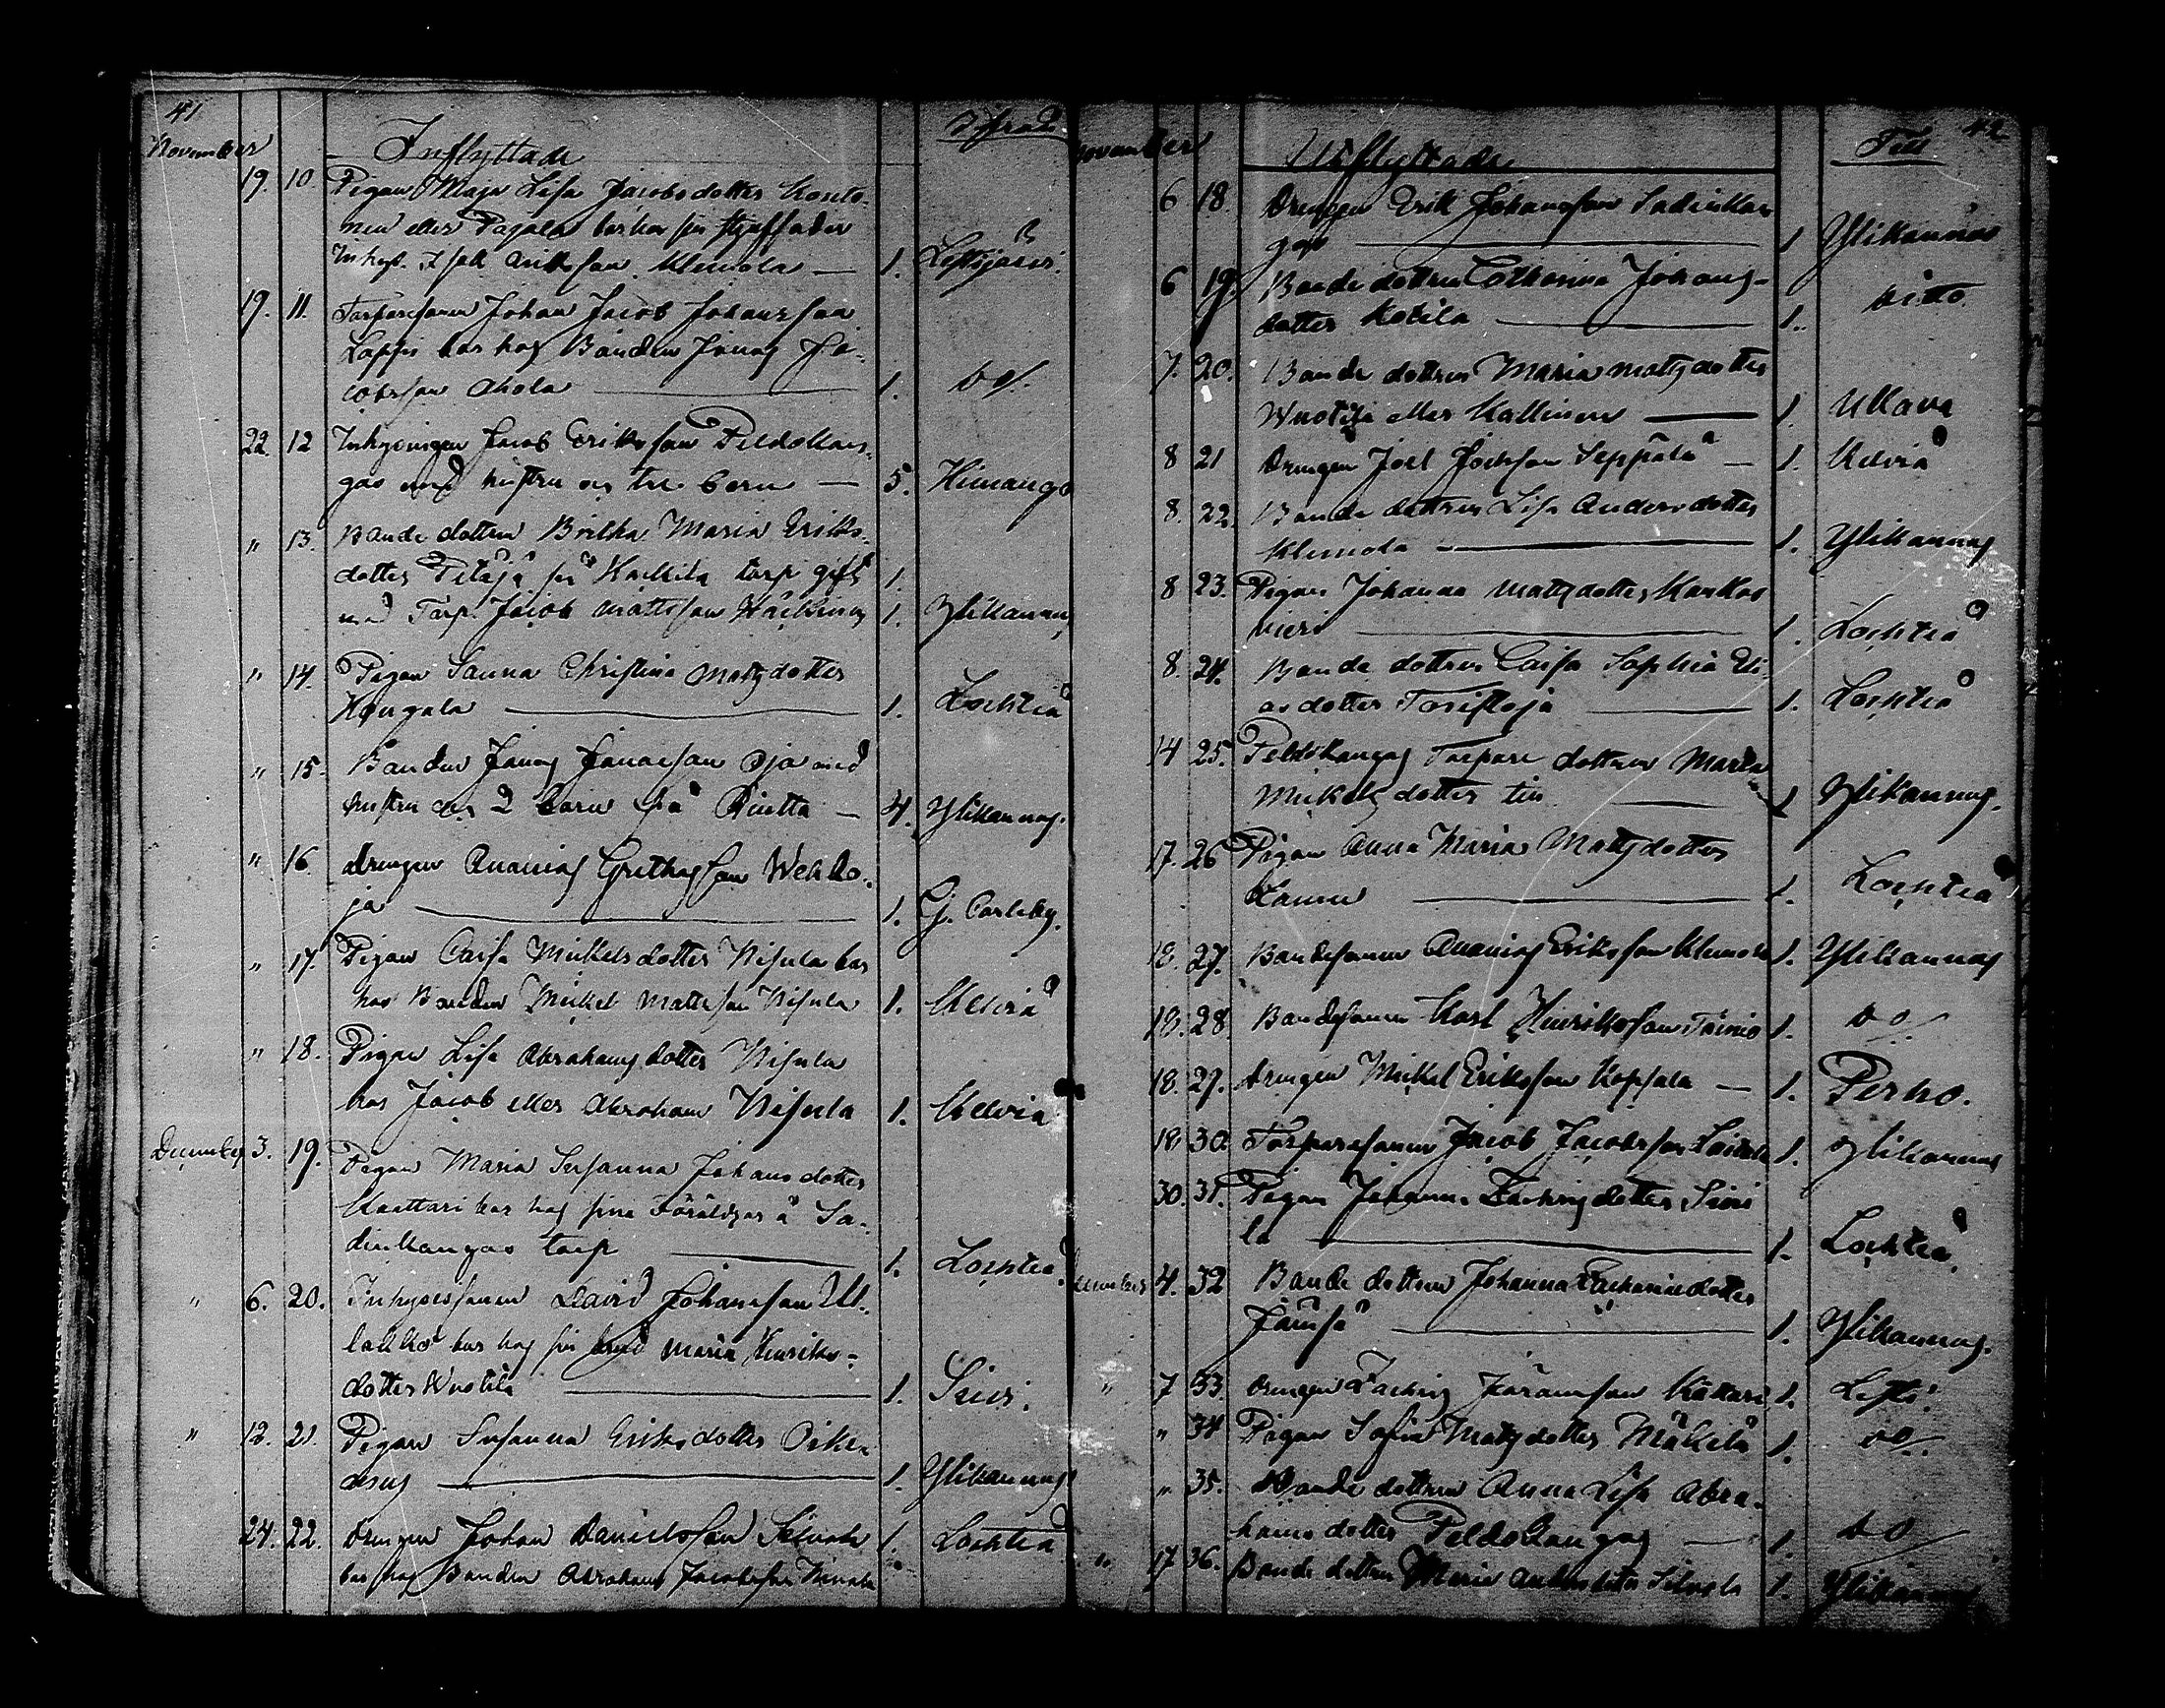 41
November Inflyttade Ifrån
19. 10. Pigan Maja Lisa Jacobsdotter Konto-
nen eller Pajala bor hos sin styffader
Inhys. Isak Anttson Klemola — 1. Lestijärvi.
19. 11. Torparesonen Johan Jacob Johansson
Lappi bor hos Bonden Jonas Ja-
cobsson Ahola — 1. do/.
22. 12 Inhysingen Jacob Eriksson Peldokan-
gas med hustru och tre barn — 5. Himango
" 13. Bonde dottren Britha Maria Eriks-
dotter Petäjä på Heikkilä torp gift 1.
med Torp. Jacob Mattsson 1. Ylikannus
" 14. Pigan Sanna Christina Matsdotter
Hongala — 1. Lochteå
" 15. Bonden Jonas Jonasson Oja med
hustru och 2 barn på — 4. Ylikannus.
" 16. Drengen Ananias Grethasson Wehko-
ja — 1. G. Carleby.
" 17. Pigan Caisa Mickelsdotter Nisula bor
hos Bonden Mickel Mattsson Nisula 1. Kelviå
" 18. Pigan Lisa Abrahamsdotter Nisula
hos Jacob eller Abraham Nisula 1. Kelviå
December 3. 19. Pigan Maria Susanna Johansdotter
Kaattari bor hos sina Föräldrar å Sa-
dinkangas torp — 1. Lochteå
" 6. 20. Inhysessonen David Johansson Ul-
lakko bor hos sin brud Maria Henriks-
dotter Wuotila — 1. Sievi.
" 12. 21. Pigan Susanna Eriksdotter Oike-
— 1. Ylikannus
24. 22. Drengen Johan Danielsson Salvola 1. Lochteå
bor hos Bonden Abraham Jacobsson
42
November Utflyttade Till
6 18. Drengen Erik Johansson Sadinkan-
gas — 1 Ylikannus
6 19. Bonde dottren Catharina Johans-
dotter Kotila — 1. Ditto
7. 20. Bonde dottren Maria Matsdotter
Wuotila eller Kallinen — 1. Ullava
8 21 Drengen Joel Seppälä — 1. Kelviå
8. 22. Bonde dottren Lisa Andersdotter
Klemola — 1. Ylikannus
8 23. Pigan Johanna Matsdotter Karhu-
— 1. Lochteå
8. 24. Bonde dottren Caisa Sophia Eli-
asdotter Toristoja — 1. Lochteå
14 25. Peldokangas Torpare dottren Maria
Mickelsdotter — 1 Ylikannus.
17. 26 Pigan Anna Maria Matsdotter
— 1. Lochteå
18. 27. Bondesonen Ananias Eriksson Klemola 1. Ylikannus
18. 28 Bondesonen Karl Henriksson Tainio 1. do/.
18. 29. Drengen Mickel Eriksson Kopsala — 1. Perho.
18. 30. Torparesonen Jacob Jacobsson 1. Ylikannus
30. 31. Pigan Johanna Zachrisdotter Siiri-
la — 1. Lochteå.
December 4. 32 Bonde dottren Johanna Zachariædotter
Jämsä — 1. Ylikannus.
" 7 33. Drengen Zachris Jöransson Kattari 1. Lesti.
" 34 Pigan Sofia Matsdotter Mäkelä 1. do/.
" 35. Bonde dottren Anna Lisa Abra-
hamsdotter Peldokangas — 1. do/
" 17 36. Bonde dottren Maria Andersdotter Salvola 1. Ylikannus